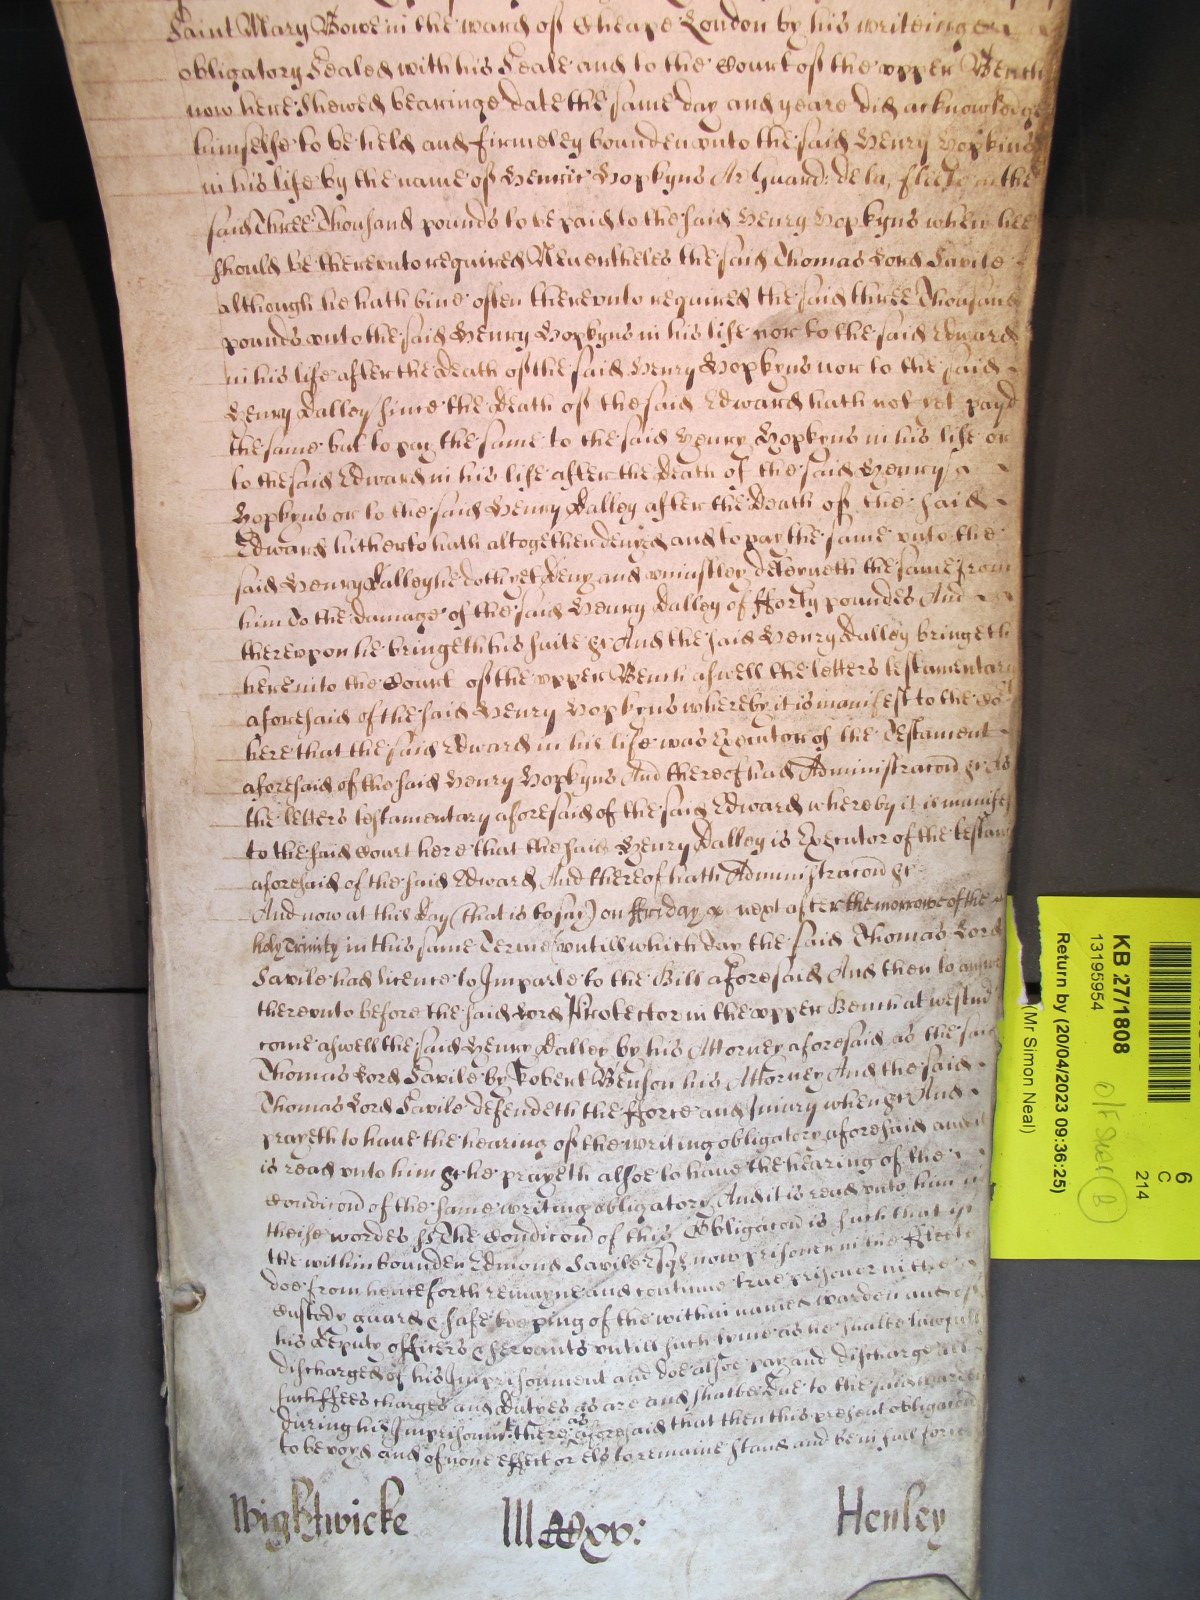 Saint Mary Bowe in the ward of Cheape London by his writeinge
obligatory Sealed with his Seale and to the Court of the vpper Bench
now here Shewed bearinge date the same day and yeare did acknowledge
himselfe to be held and firmeley bounden vnto the said Henry Hopkins
in his life by the name of Henrie Hopkyns Ar Guard: de la, fleete in the
said Three Thousand pounds to be paid to the said Henry Hopkyns when hee
should be therevnto required Neuertheles the said Thomas Lord Savile
although he hath bine often therevnto required the said three Thousand
pounds vnto the said Henry Hopkyns in his life nor to the said Edward
in his life after the death of the said Henry Hopkyns nor to the said
Henry Dalley since the death of the said Edward hath not yet payd
the same but to pay the same to the said Henry Hopkyns in his life or
to the said Edward in his life after the death of the said Henry
Hopkyns or to the said Henry Dalley after the Death of the said
Edward hitherto hath altogether denyed and to pay the same vnto the
said Henry Dalley he doth yet deny and vniustley deteyneth the same from
him To the damage of the said Henry Dalley of fforty poundes And
therevpon he bringeth his suite &c And the said Henry Dalley bringeth
here into the Court of the vpper Bench aswell the letters testamentary
aforesaid of the said Henry Hopkyns whereby it is manifest to the Co
here that the said Edward in his life was Executor of the Testament
aforesaid of the said Henry Hopkyns And thereof had Administracon &c As
the letters testamentary aforesaid of the said Edward whereby it is manifest
to the said Court here that the said Henry Dalley is Executor of the testam
aforesaid of the said Edward And thereof hath Administracon &c
And now at this day (that is to say) on ffriday next after the morrowe of the
holy Trinity in this same Terme vntill which day the said Thomas Lord
Savile had licence to Imparle to the Bill aforesaid And then to answer
therevnto before the said Lord Protector in the vpper Bench at westm
come aswell the said Henry Dalley by his Attorney aforesaid as the said
Thomas Lord Savile by Robert Benson his Attorney And the said
Thomas Lord Savile defendeth the fforce and Iniury when &c And
prayeth to haue the hearing of the writing obligatory aforesaid and it
is read vnto him &c he prayeth alsoe to haue the hearing of the
Condicon of the same writing obligatory And it is read vnto him in
theise wordes ss The Condicon of this Obligacon is such that if
the within bounden Edmond Savile Esqr now prisoner in the Fleete
doe from henceforth remayne and continue true prisoner in the
Custody guard & safe keeping of the within named warden and of
his deputy officers & servants vntill such tyme as he shalbe lawfull
discharged of his Imprisonment and doe alsoe pay and discharge all
such ffees charges and dutyes as are and shalbe due to the said warden
during his Imprisonmt there as aforesaid that then this present obligacon
to be voyd and of none effect or els to remaine stand and be in full force
Wightwicke IIII MDxv: Henley
KB 27/1808
13195954
Return by (20/04/2023 09:36:25)
(Mr Simon Neal)
6
C
214